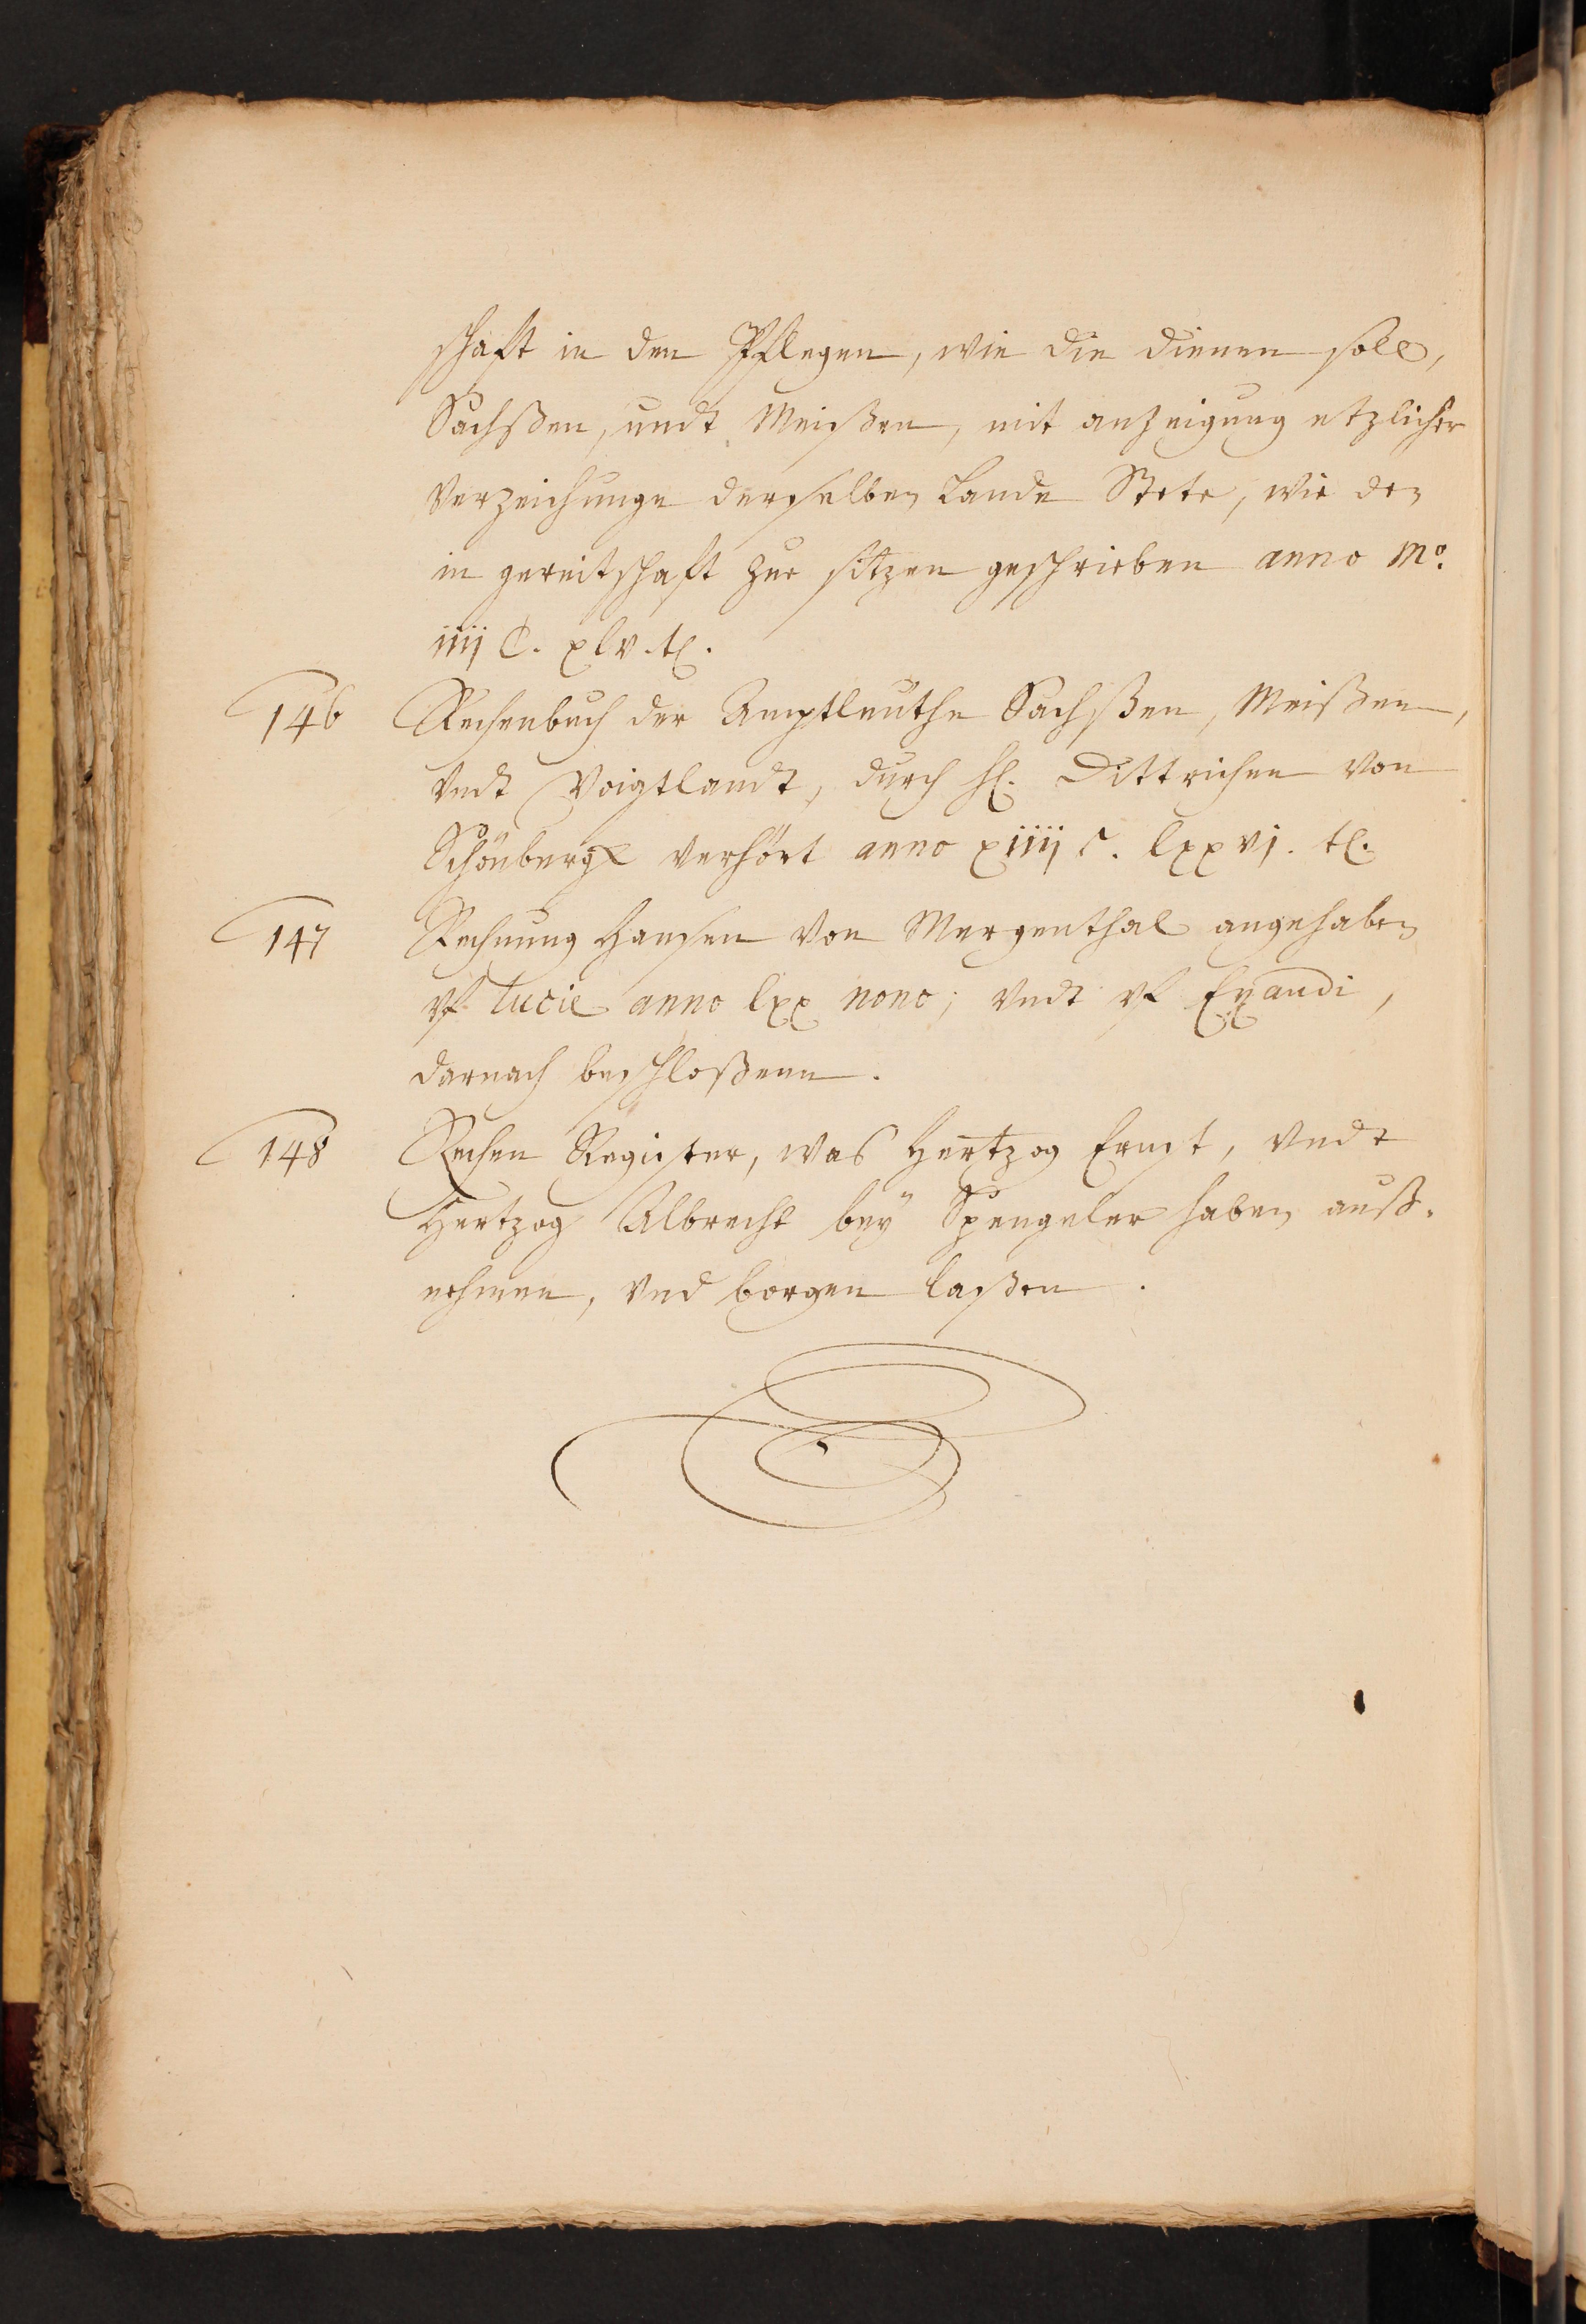 schaft in den Pflegen, wie die dienen soll,
Sachßen, undt Meißen, mit anzeigung etzlicher
Verzeichunge derselben Lande Stete, wie den
in gereitschaft zue sitzen geschrieben anno Mo.
iiij C. xlv. tl.
146 Rechenbuch der Amptleuthe Sachßen, Meißen,
Vndt Voigtlandt, durch H. Dittrichen von
Schönbergk verhört anno xiiij C. lxxvj. tl.
147 Rechnung Hansen von Mergenthal angehaben
vf Lucie anno lxx nono; Vndt vf Exaudi,
darnach beschloßenn.
148 Rechen Register, was Hertzog Ernst, Vndt
Hertzog Albrecht beÿ Spengeler haben auß-
nehmen, Vnd borgen laßen.